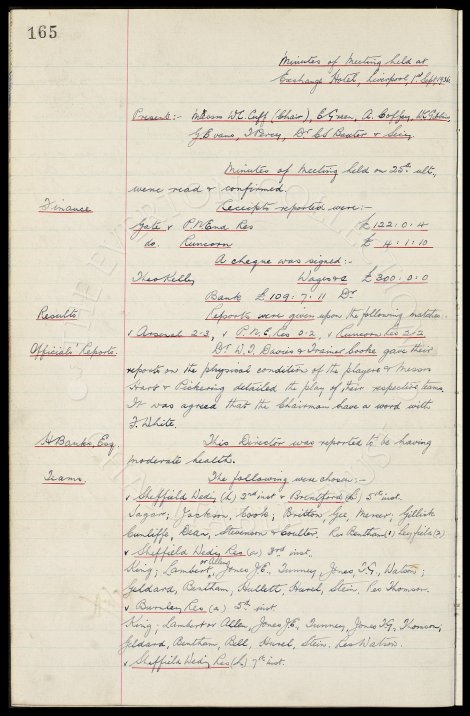 165
Minutes of Meeting held at
Exchange Hotel, Liverpool, 1st Sept. 1936.
Present:- Messrs W.C. Cuff (Chair), E Green, A. Coffey, W.C. Gibbins,
G Evans, J Percy, Dr C.S. Baxter & Secy.
Minutes of Meeting held on 25th ult,
were read & confirmed.
Finance Receipts reported were:-
Gate v P.N.End Res £122:0:4
do. Runcorn £ 4:1:10
A cheque was signed:-
Theo Kelly Wages &c £300:0:0
Bank £109:7:11 Dr
Results Reports were given upon the following matches:-
v Arsenal 2-3, v P.N.E. Res 0-2, v Runcorn Res 2-2
Officials' Reports. Dr W.J. Davies & Trainer Cooke gave their
reports on the physical condition of the players & Messrs
Hart & Pickering detailed the play of their respective teams.
It was agreed that the Chairman have a word with
F. White.
H Banks, Esq. This Director was reported to be having
moderate health.
Teams. The following were chosen:-
v Sheffield Wedy (h) 2nd inst & Brentford (h) 5th inst.
Sagar; Jackson, Cook; Britton Gee, Mercer; Gillick
Cunliffe, Dean, Stevenson & Coulter. Res Bentham (1)
v Sheffield Wedy Res (a) 3rd inst.
King; Lambert or Allen, Jones J.E., Tunney, Jones, T.G., Watson;
Geldard, Bentham, Hullett, Hurel, Stein. Res Thomson.
v Burnley Res. (a) 5th inst.
King; Lambert or Allen, Jones J.E., Tunney, Jones T.G., Thomson,
Geldard, Bentham, Bell, Hurel, Stein. Res Watson.
v Sheffield Wedy Res (h) 7th inst.